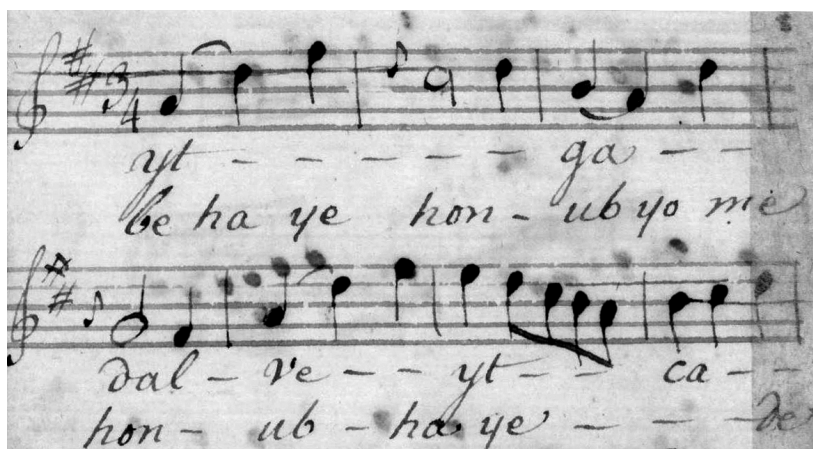 3 4
yt - - - - - ga - -
be ha ye hon - ub yo me
dal - ve - - yt - - ca - -
hon - ub - ha ye - - - de